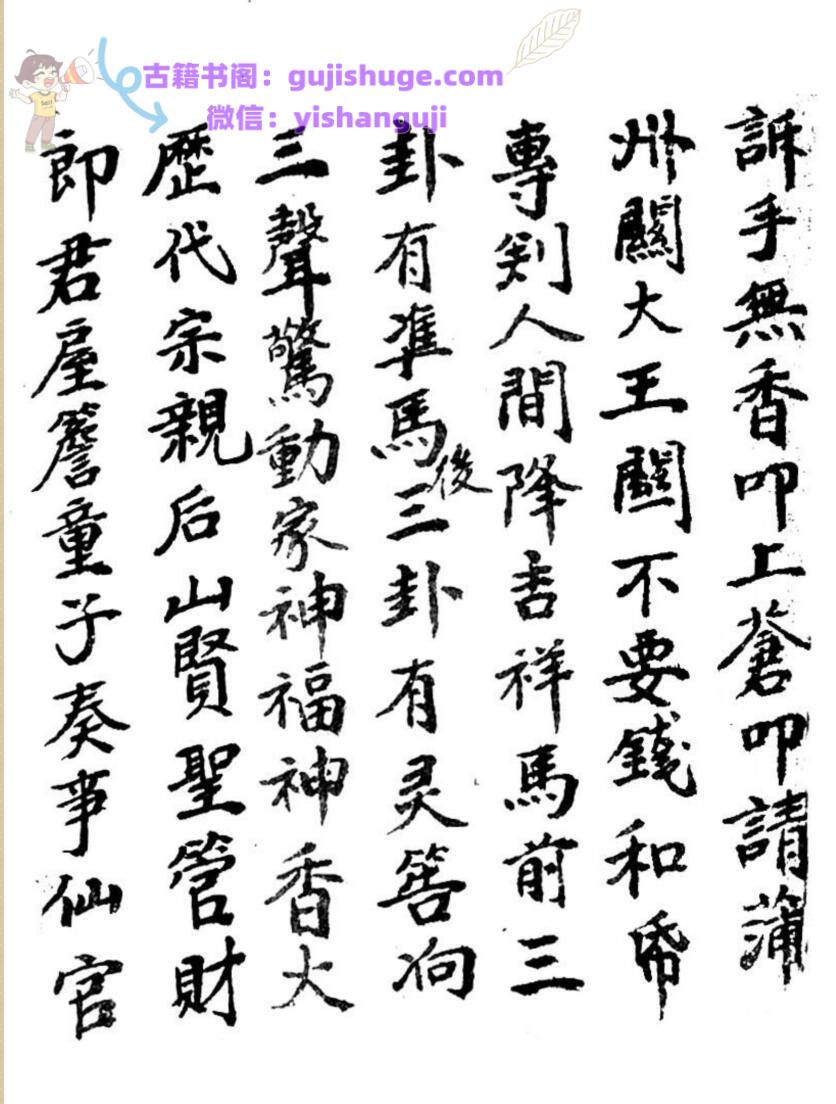 古籍书阁：gujishuge.com
微信：yishanguji
訴手無香叩上蒼叩請蒲
州關大王關不要錢和帋
專到人間降吉祥馬前三
卦有準馬後三卦有灵筶响
三聲驚動家神福神香火
歷代宗親后山賢聖管財
郎君屋簷童子奏事仙官